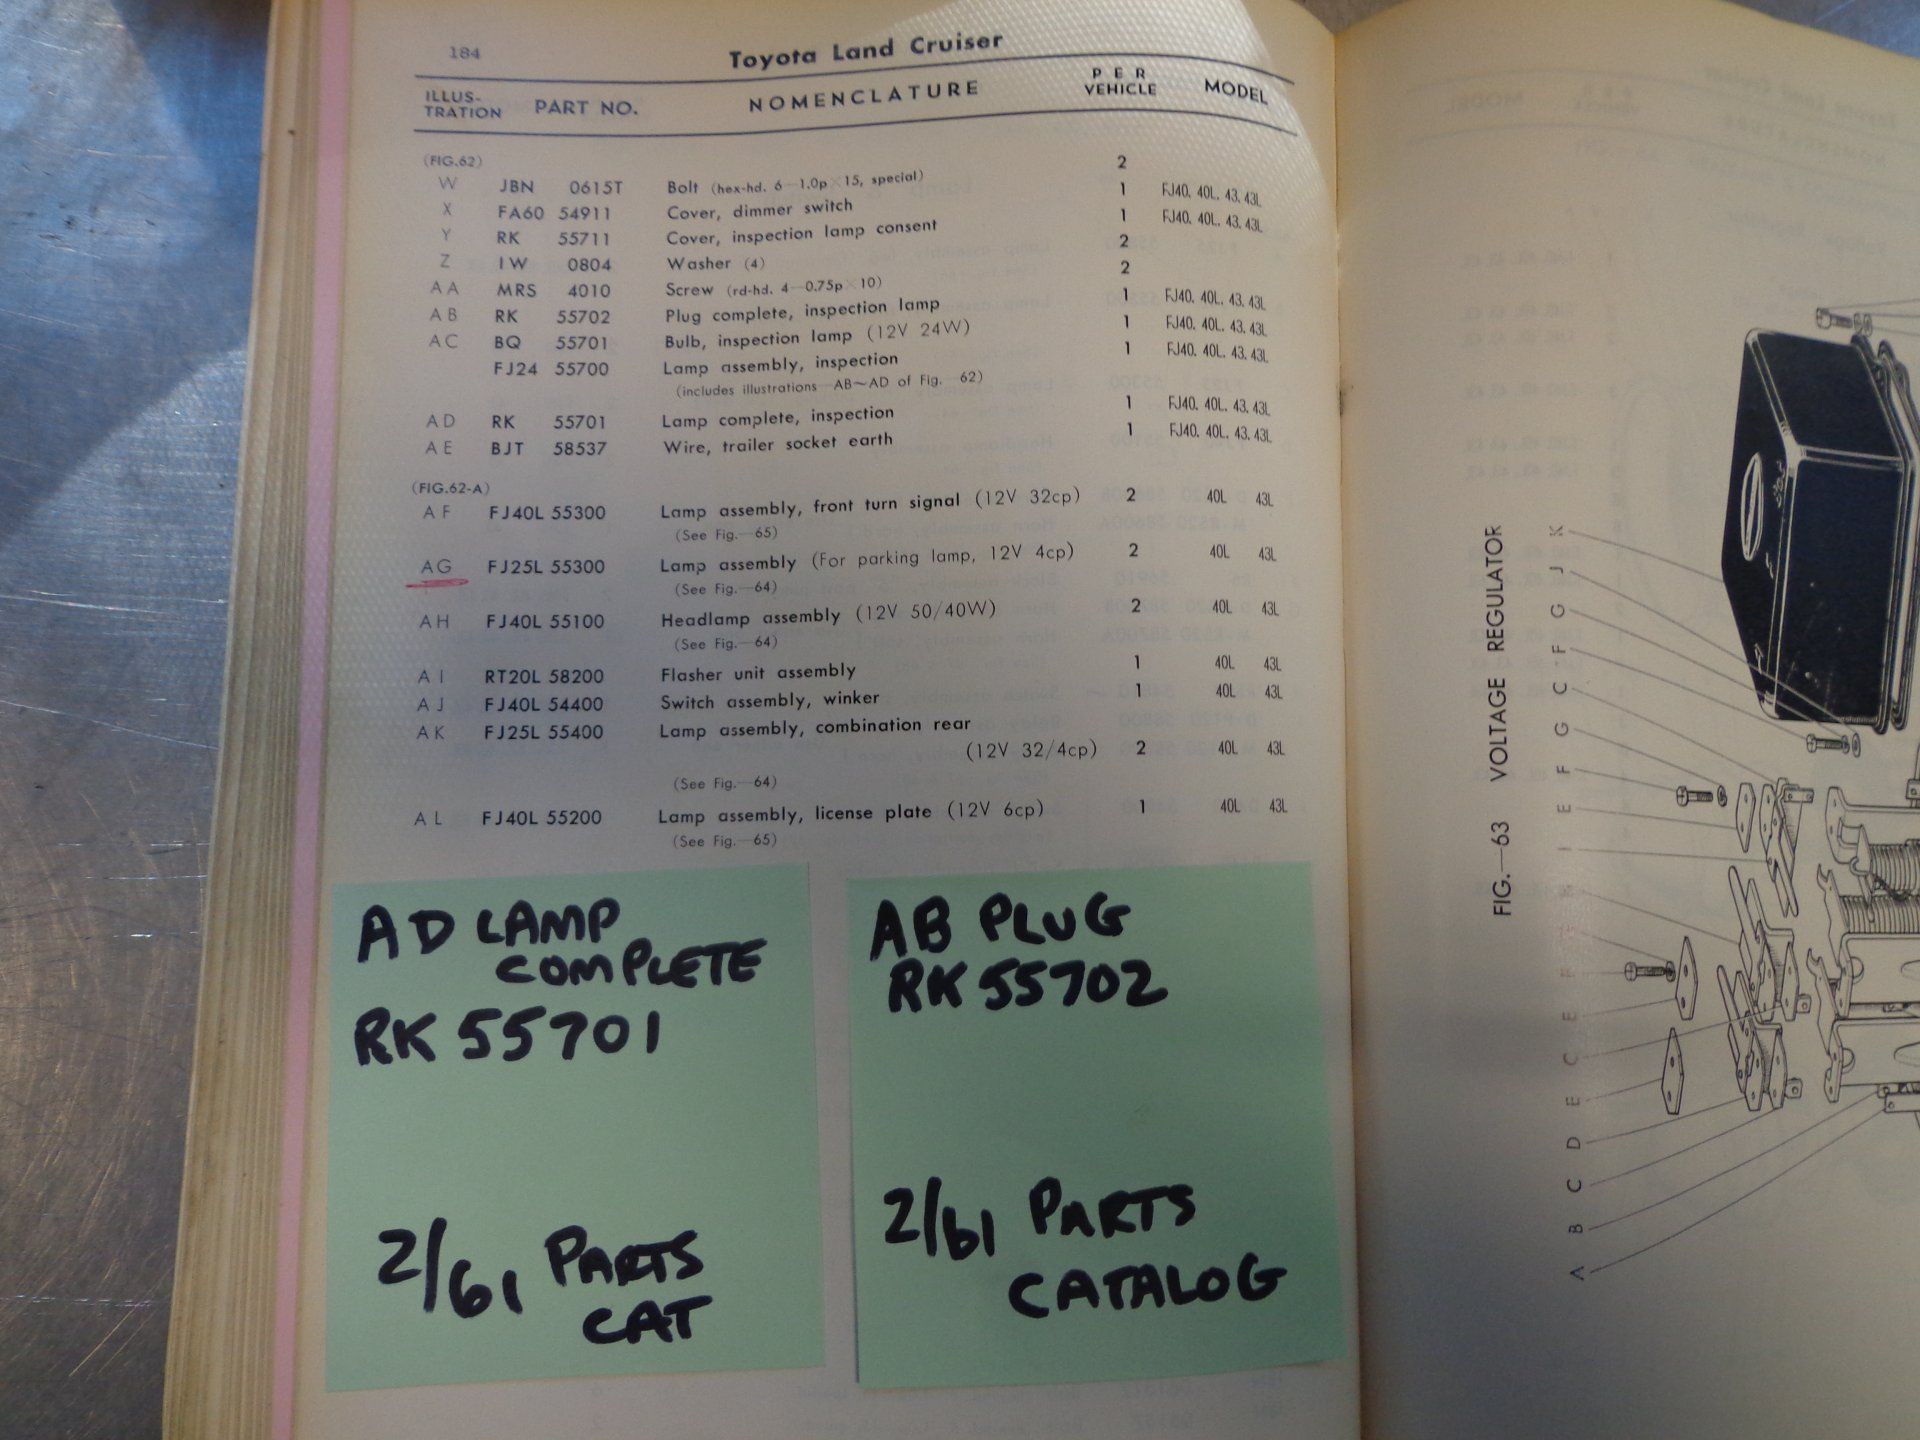 184
Toyota Land Cruiser
ILLUS-
TRATION PART NO. NOMENCLATURE PER VEHICLE MODEL
(FIG.62)
W JBN 0615T Bolt (hex-hd. 6—1.0p×15, special) 2
X FA60 54911 Cover, dimmer switch 1 FJ40. 40L. 43. 43L
Y RK 55711 Cover, inspection lamp consent 1 FJ40. 40L. 43. 43L
Z IW 0804 Washer (4) 2
AA MRS 4010 Screw (rd-hd. 4—0.75p×10) 2
AB RK 55702 Plug complete, inspection lamp 1 FJ40. 40L. 43. 43L
AC BQ 55701 Bulb, inspection lamp (12V 24W) 1 FJ40. 40L. 43. 43L
FJ24 55700 Lamp assembly, inspection 1 FJ40. 40L. 43. 43L
(includes illustrations—AB~AD of Fig.—62)
AD RK 55701 Lamp complete, inspection 1 FJ40. 40L. 43. 43L
AE BJT 58537 Wire, trailer socket earth 1 FJ40. 40L. 43. 43L
(FIG.62-A)
AF FJ40L 55300 Lamp assembly, front turn signal (12V 32cp) 2 40L 43L
(See Fig.—65)
AG FJ25L 55300 Lamp assembly (For parking lamp, 12V 4cp) 2 40L 43L
(See Fig.—64)
AH FJ40L 55100 Headlamp assembly (12V 50/40W) 2 40L 43L
(See Fig.—64)
AI RT20L 58200 Flasher unit assembly 1 40L 43L
AJ FJ40L 54400 Switch assembly, winker 1 40L 43L
AK FJ25L 55400 Lamp assembly, combination rear
(12V 32/4cp) 2 40L 43L
(See Fig.—64)
AL FJ40L 55200 Lamp assembly, license plate (12V 6cp) 1 40L 43L
(See Fig.—65)
AD LAMP
COMPLETE
RK 55701
2/61 PARTS
CAT
AB PLUG
RK 55702
2/61 PARTS
CATALOG
FIG.—63 VOLTAGE REGULATOR
K
J
G
F
C
G
F
E
I
E
C
E
D
C
B
A